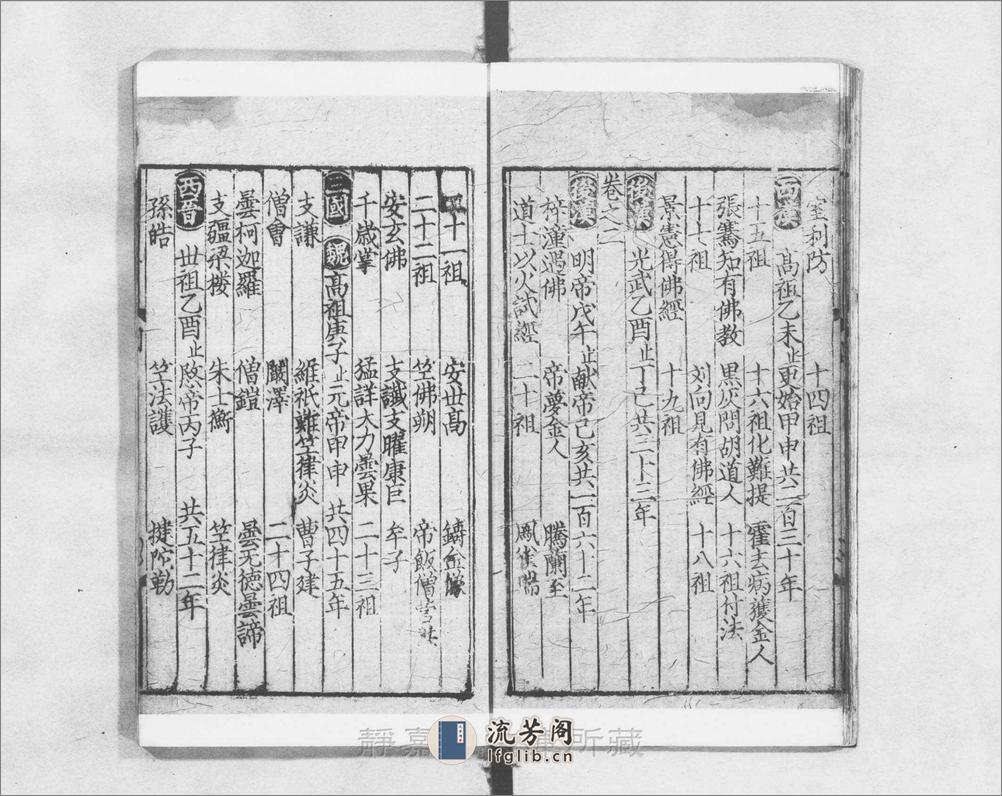 室利防 十四祖
西漢 高祖乙未止更始甲申共二百三十年
十五祖 十六祖化難提 霍去病獲金人
張騫知有佛教 黑灰問胡道人 十六祖付法
十七祖 刘向見有佛經 十八祖
景憲得佛經 十九祖
後漢 光武乙酉止丁巳共三十三年
卷之二
後漢 明帝戊午止献帝己亥共一百六十二年
梓潼遇佛 帝夢金人 騰蘭至
道士以火試經 二十祖
二十一祖 安世高 鑄金像
二十二祖 竺佛朔 帝飯僧
安玄佛 支讖支曜康巨 牟子
千歲掌 猛詳大力曇果 二十三祖
三國 魏 高祖庚子止元帝甲申 共四十五年
支謙 維祇難竺律炎 曹子建
僧會 闞澤 二十四祖
曇柯迦羅 僧鎧 曇无德曇諦
支疆梁接 朱士衡 竺律炎
西晉 世祖乙酉止愍帝丙子 共五十二年
孫皓 竺法護 揵陀勒
靜嘉 所藏
流芳阁
lfglib.cn